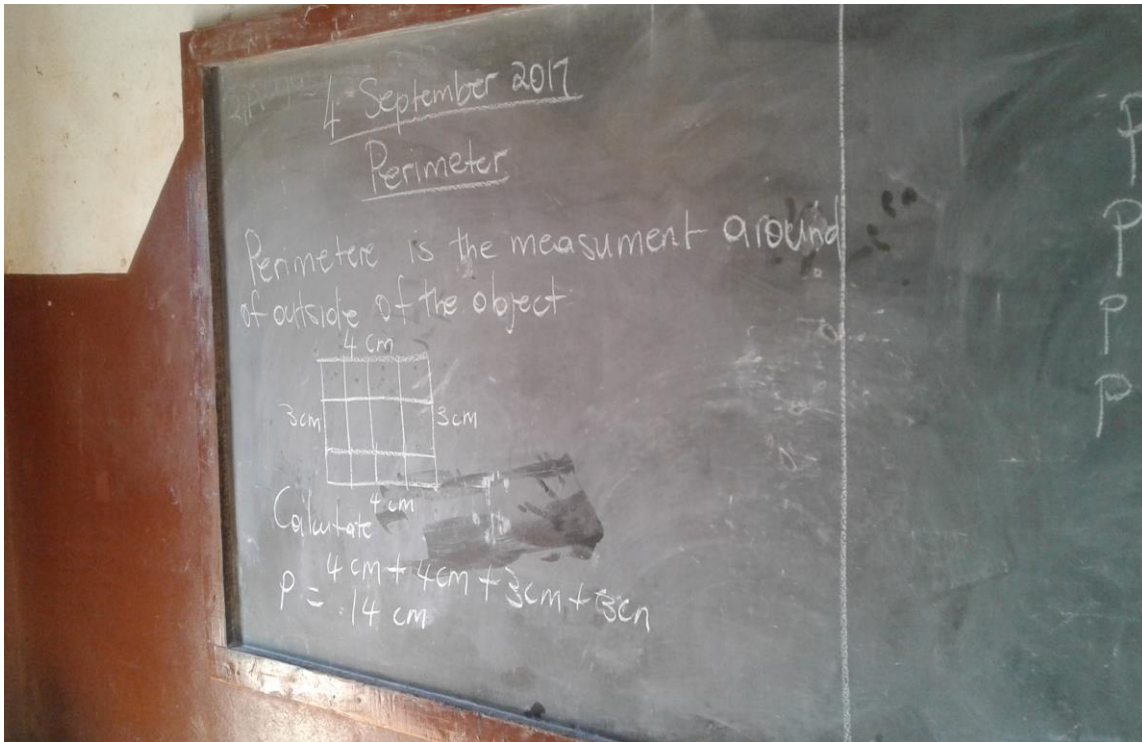 4 September 2017
Perimeter
Perimetere is the measument around
of outside of the object
4 cm
3cm 3cm
4 cm
Calcutate
P = 4 cm + 4cm + 3cm + 3cn
14 cm
P
P
P
P